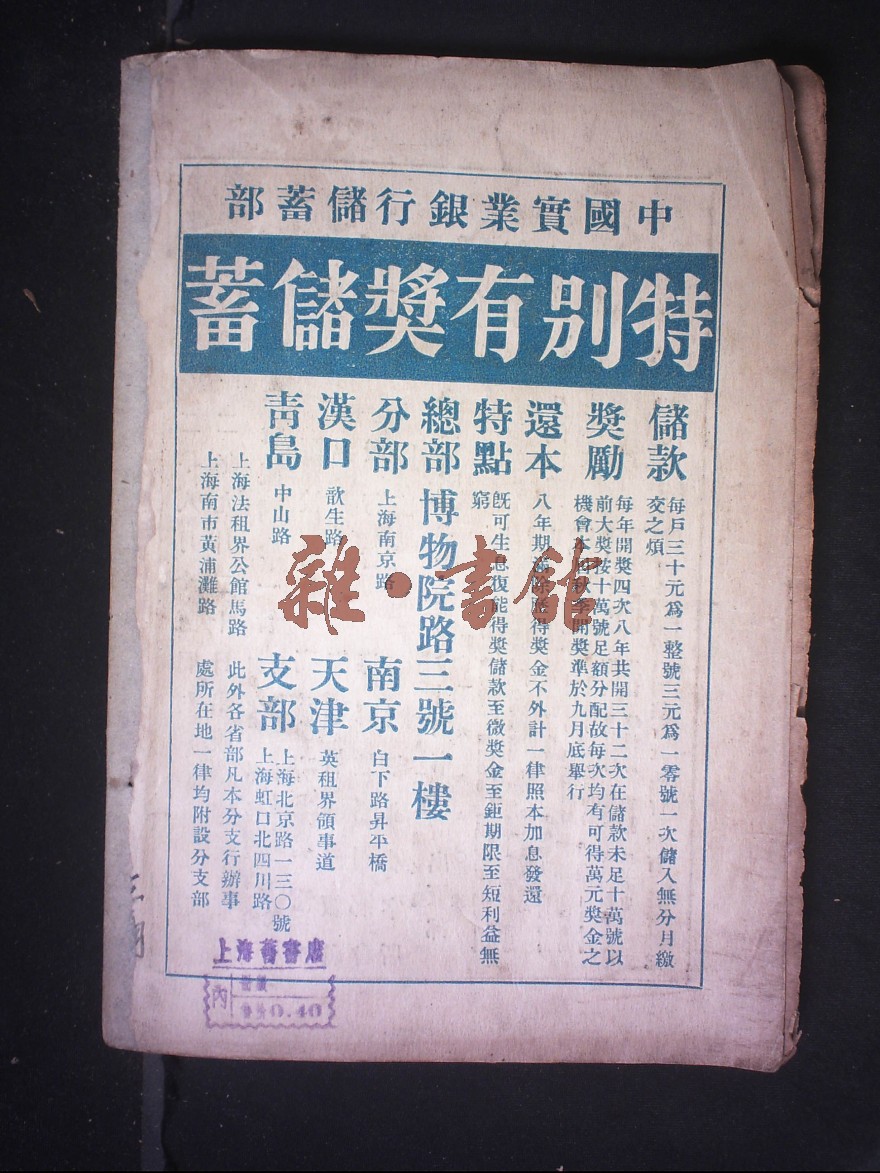 中國實業銀行儲蓄部
特別有獎儲蓄
儲款
每戶三十元爲一整號三元爲一零號一次儲入無分月繳
交之煩
獎勵
每年開獎四次八年共開三十二次在儲款未足十萬號以
前大獎按十萬號足額分配故每次均有可得萬元獎金之
機會本屆秋季開獎準於九月底舉行
還本
八年期滿除所得獎金不外計一律照本加息發還
特點
既可生息復能得獎儲款至微獎金至鉅期限至短利益無
窮
總部 博物院路三號一樓
分部 上海南京路
南京 白下路昇平橋
漢口 歆生路
天津 英租界領事道
青島 中山路
支部 上海北京路一三〇號
上海虹口北四川路
上海法租界公館馬路
上海南市黃浦灘路
此外各省部凡本分支行辦事
處所在地一律均附設分支部
雜·書館
上海舊書店
內
0.40